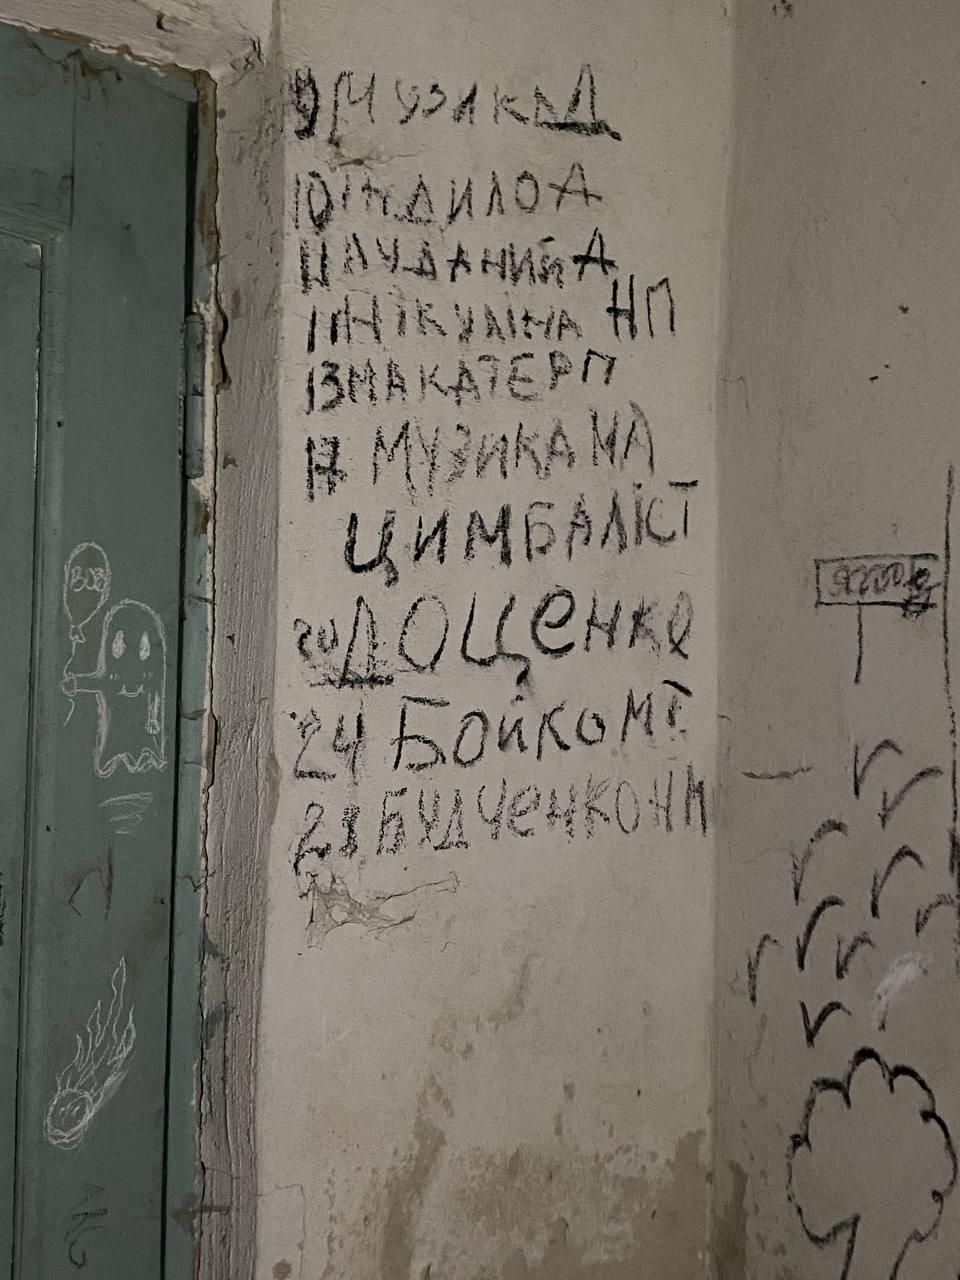 9 МУЗИКА Д
10 ІНДИЛО А
11 АУДАНИЙ А
11 НІКУЛІНА НП
13 МАКАТЕР П
17 МУЗИКА МА
ЦИМБАЛІСТ
20 ДОЦЕНКО
24 БОЙКО МТ
28 БУДЧЕНКО НМ
BOO